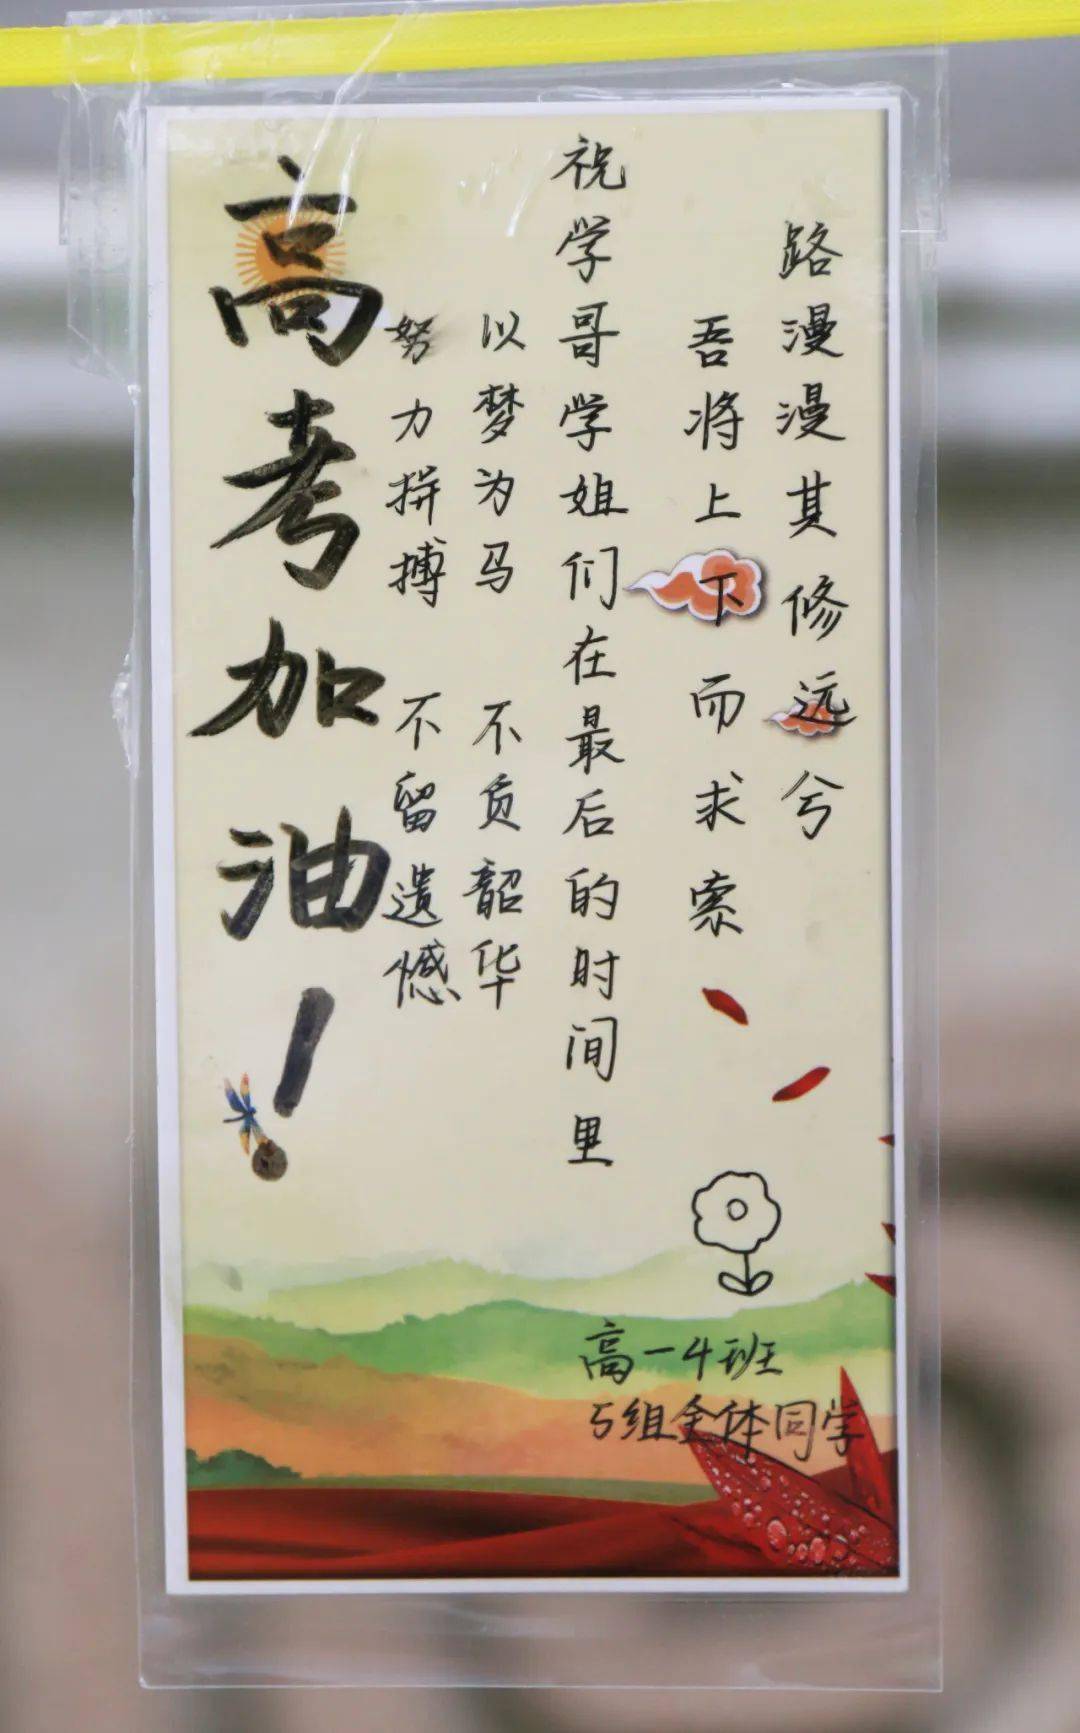 路漫漫其修远兮
吾将上下而求索
祝学哥学姐们在最后的时间里
以梦为马 不负韶华
努力拼搏 不留遗憾
高考加油！
高一4班
5组全体同学